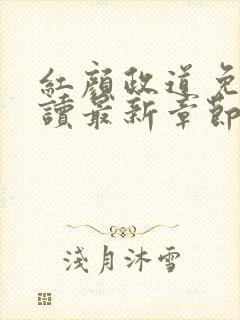 紅顏政道免
讀最新章節
淺月沐雪